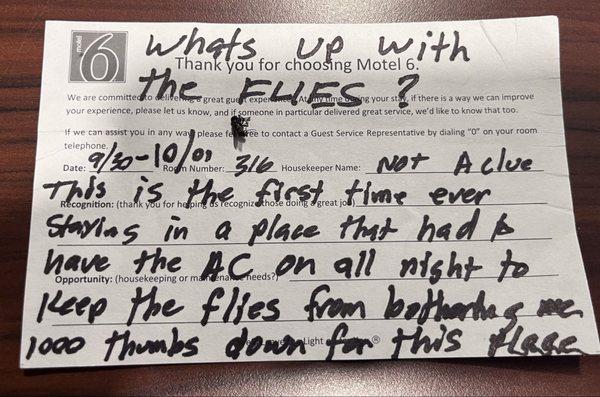 motel 6
Whats up with
Thank you for choosing Motel 6.
the FLIES?
We are committed to delivering a great guest experience. At any time during your stay, if there is a way we can improve
your experience, please let us know, and if someone in particular delivered great service, we'd like to know that too.
If we can assist you in any way, please feel free to contact a Guest Service Representative by dialing "0" on your room
telephone.
Date: 9/30-10/01 Room Number: 316 Housekeeper Name: Not A clue
This is the first time ever
Recognition: (thank you for helping us recognize those doing a great job)
Staying in a place that had to
have the AC on all night to
Opportunity: (housekeeping or maintenance needs?)
Keep the flies from bothering me
1000 thumbs down for this place
Light ®